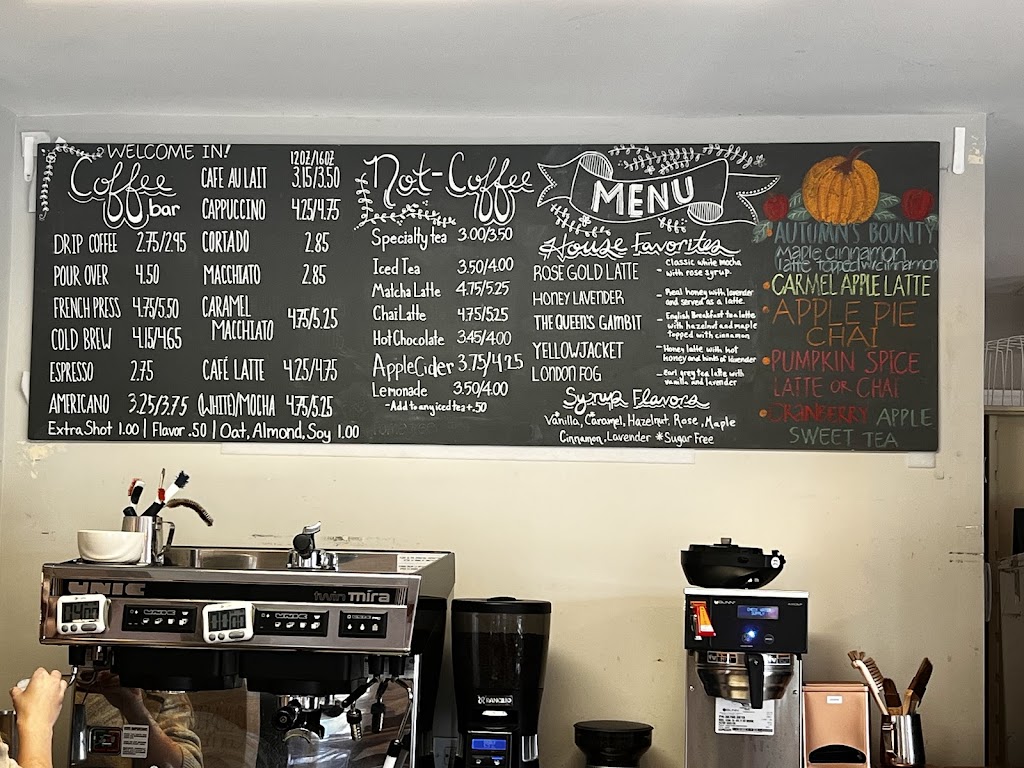 WELCOME IN!
Coffee
bar
DRIP COFFEE 2.75/2.95
POUR OVER 4.50
FRENCH PRESS 4.75/5.50
COLD BREW 4.15/4.65
ESPRESSO 2.75
AMERICANO 3.25/3.75
12OZ/16OZ
CAFE AU LAIT 3.15/3.50
CAPPUCCINO 4.25/4.75
CORTADO 2.85
MACCHIATO 2.85
CARAMEL
MACCHIATO 4.75/5.25
CAFÉ LATTE 4.25/4.75
(WHITE)/MOCHA 4.75/5.25
Extra Shot 1.00 | Flavor .50 | Oat, Almond, Soy 1.00
Not-Coffee
Specialty tea 3.00/3.50
Iced Tea 3.50/4.00
Matcha Latte 4.75/5.25
Chai Latte 4.75/5.25
Hot Chocolate 3.45/4.00
Apple Cider 3.75/4.25
Lemonade 3.50/4.00
- Add to any iced tea +.50
MENU
House Favorites
ROSE GOLD LATTE - Classic white mocha
with rose syrup.
HONEY LAVENDER - Real honey with lavender
and served as a latte
THE QUEEN'S GAMBIT - English Breakfast tea latte
with hazelnut and maple
topped with cinnamon
YELLOWJACKET - Honey latte with hot
honey and hints of lavender
LONDON FOG - Earl grey tea latte with
vanilla and lavender
Syrup Flavors
Vanilla, Caramel, Hazelnut, Rose, Maple
Cinnamon, Lavender *Sugar Free
AUTUMN'S BOUNTY
Maple Cinnamon
latte topped w/cinnamon
CARMEL APPLE LATTE
APPLE PIE
CHAI
PUMPKIN SPICE
LATTE OR CHAI
CRANBERRY APPLE
SWEET TEA
UNIC
twin mira
UNIC
UNIC
RANCILIO
BUNN